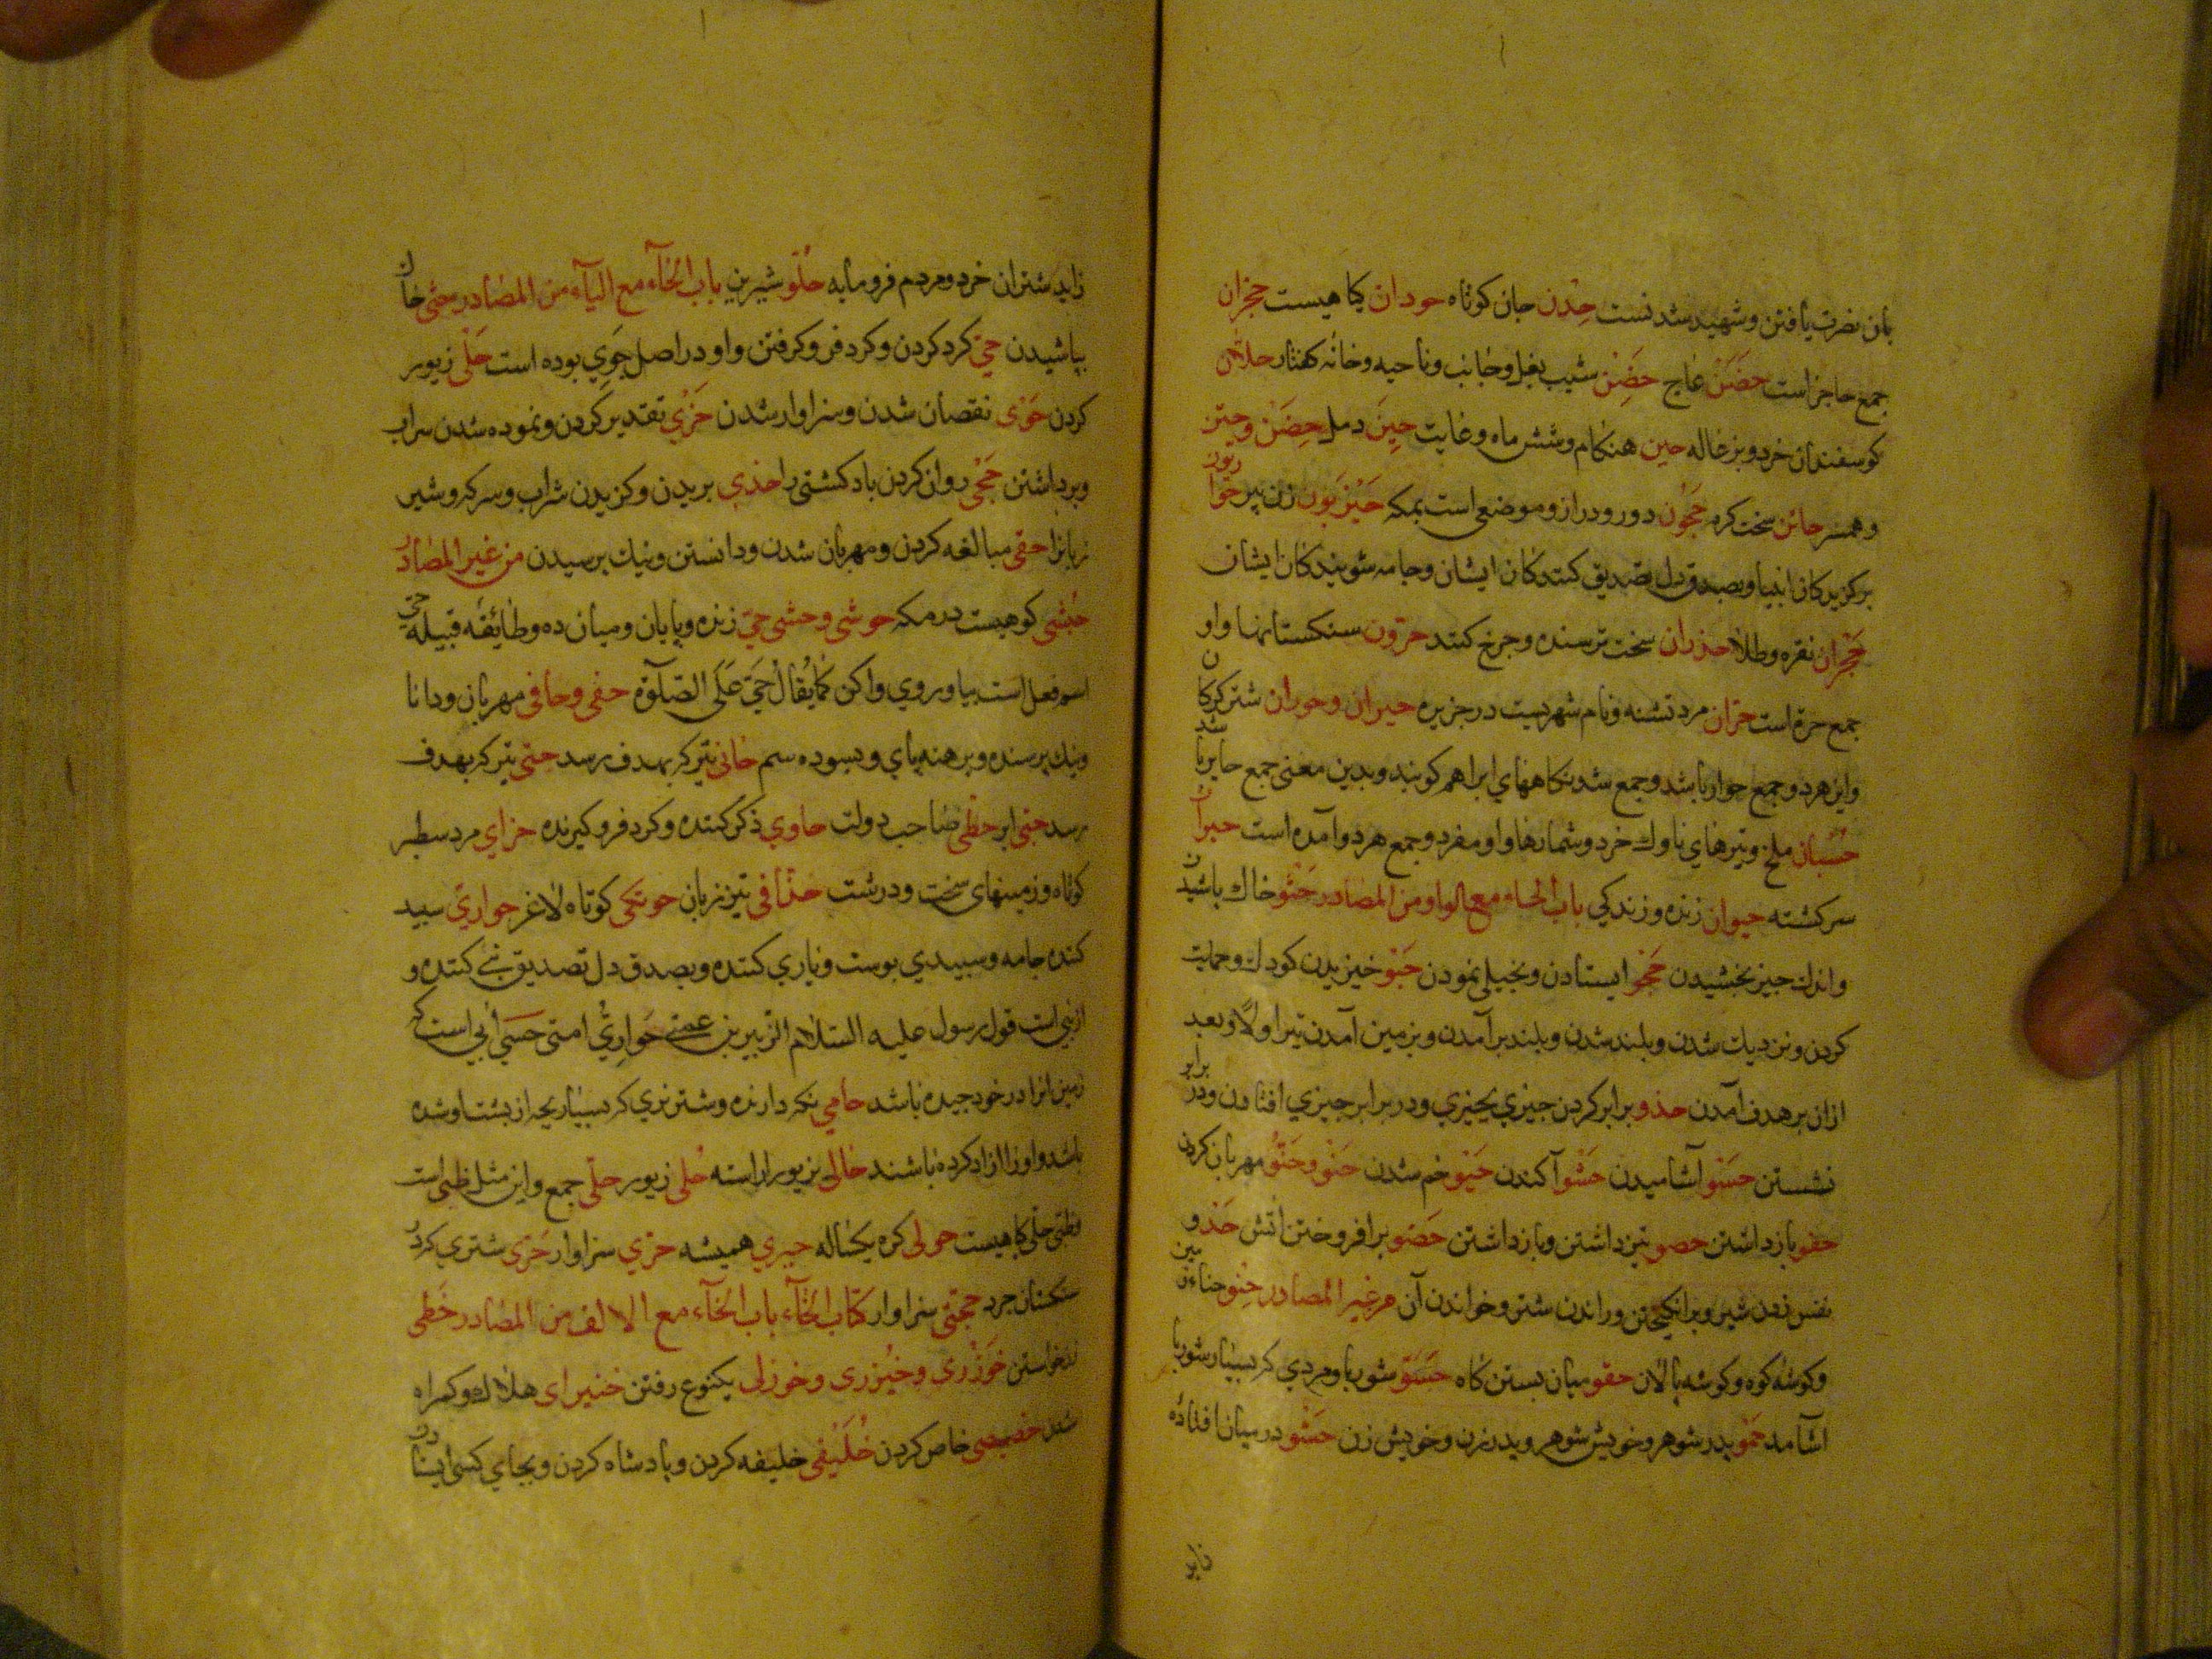 بان نصرت یافتن و شهید شدنست حِذن جان کوتاه حوذان کیا هیست حجزان
جمع حاجز است حَضَن عاج حِضن شیب بغل و جانب و ناحیه و خانه کفتار
کوسفندان خرد و بزغاله حین هنکام و شش ماه و غایت حِین دمل حِضَن و
و همسر حاتن سخت کرم حَجون دور و دراز و موضعی است بمکه حَیزَبون زن پیر
برکزیدکان انبیا و بصدق دل تصدیق کنندکان ایشان و جامه شویندکان ایشان
حَجَران نقره و طلا حذران سخت ترسنده و جرخ کنند حرّون سنکستانها واو
جمع حرة است حرّان مرد تشنه و نام شهریست در جزیره حیران و حوران شتر کرکان
و این هر دو جمع حوار باشد و جمع شدنکاههای ابراهم کویند و بدین معنی جمع حایر باشد
حُسبان ملخ و تیرهای ناوك خرد و شمارها و او مفرد و جمع هر دو آمده است حیران
سرکشته حیوان زنده و زندکی باب الحاء مع الواو من المصادر حَثو خاك پاشیدن
و اندك جیز بخشیدن حَجو ایستادن و بخیلی نمودن حَبو خیزیدن کودك و حمایت
کردن و نزدیك شدن و بلند شدن و بلند برآمدن و بزمین آمدن تیر اولاً و بعد
ازان بر هدف آمدن حذو برابر کردن جیزی بجیزی و در برابر جیزی افتادن و در برابر
نشستن حَسو آشامیدن حَشو آکندن حَنو خم شدن حنو و حُنُوّ مهربان کردن
حقو بازداشتن حصو تیز داشتن و بازداشتن حَضو برافروختن اتش حَدو
نفس زدن شیر و برانکیختن و راندن شتر و خواندن آن من غیر المصادر حِنو
و کوشه کوه و کوشه پالان حقو میان بستن کاه حَسوّ شوربا و مردی که بسیار شوربا
آشامد حَمو پدر شوهر و خویش شوهر و پدر زن و خویش زن حَشو در میان افتاده
زاید شتران خرد و مردم فرومایه حُلو شیرین باب الحاء مع الیاء من المصادر حثی خاك
بپاشیدن حَیّ کرد کردن و کرد فرو کرفتن و او در اصل حَوی بوده است حَلی زیور
کردن حَری نقصان شدن و سزاوار شدن حَزی تقدیر کردن و نموده شدن سراب
و برداشتن حَجی روان کردن باد کشتی را حذی بریدن و کزیدن شراب و سرکه و شیر
زبانرا حفی مبالغه کردن و مهربان شدن و دانستن و نیك پرسیدن من غیر المصادر
حُبشی کوهیست در مکه حوشی و حشی حیّ زنده و پایان و میان ده و طائفه قبیله حیّ
اسم فعل است بیا و روی واکن کما یقال حَیّ علی الصلوة حفی و حافی مهربان و دانا
و نیك پرسنده و برهنه پای و بسوده سم حابی تیر که بهدف رسد حبی تیر که بهدف
رسد حبی ابر حظی صاحب دولت حاوی ذکر کننده و کرد فرو کیرنده حزای مرد سطبر
کوتاه و زمینهای سخت و درشت حذاقی تیز زبان حوتکی کوتاه لاغر حواریّ سبید
کننده جامه و سبیدی بوست و یاری کننده و بصدق دل تصدیق نبی کننده و
ازینست قول رسول علیه السلام الزبیر بن عمتی حَواریّ امتی حَسی آبی است که
زمین انرا در خود جیده باشد حامی نکه دارنده و شتر نری که بسیار بجه از بشت او شده
باشد و او را ازاد کرده باشند حالی بزیور اراسته حَلی زیور حُلیّ جمع و این مثل ظبی است
و ظبی حلیّ کیاهیست حولی کره یکساله حیری همیشه حری سزاوار حَرَی شتری کرد
سنکستان جرد حجیّ سزاوار کتاب الخآء باب الخآء مع الالف من المصادر خطی
خواستن خَوزری و خَیزری و خوزلی یکنوع رفتن خنیرای هلاك و کمراه
شدن خصیصی خاص کردن خُلَیفی خلیفه کردن و پادشاه کردن و بجای کسی ایستادن